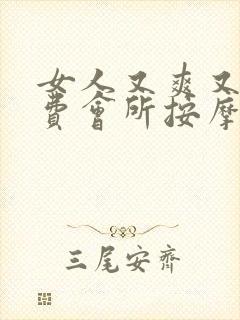 女人又爽又
费会所按摩
三尾安齊